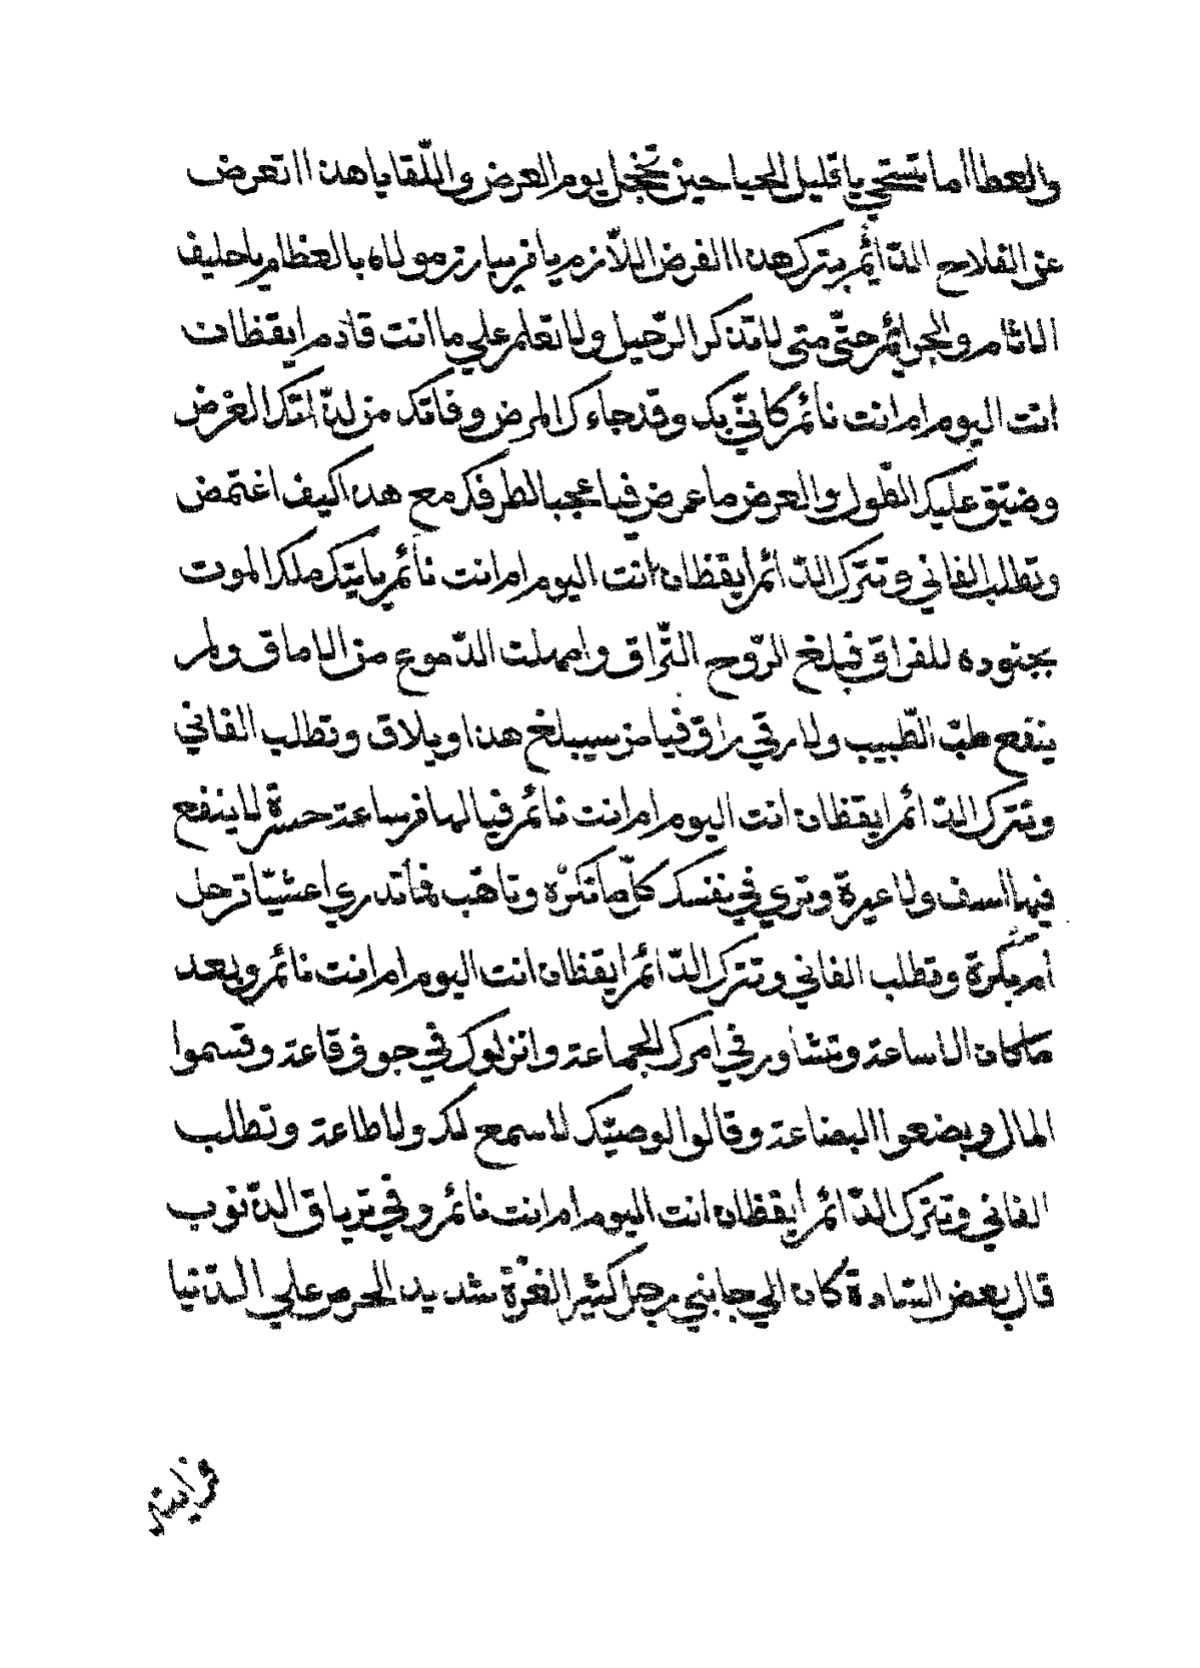 والعطا اما تستحي يا قليل الحيا حين تخجل يوم العرض واللّقا يا هذا اتعرض
عن الفلاح الدّائم بترك هذا الفرض اللاّزم يا فر يبارز مولاه بالعظايم يا حليف
الاثام والجرائم حتّى متى لا تذكر الرّحيل ولا تعلم علي ما انت قادم ايقظان
انت اليوم ام انت نائم كانّي بك وقد جاءك المرض وفاتك من لذّاتك الغرض
وضيّق عليك الطّول والعرض ما عرض فيا عجبا لطرفك مع هذا كيف اغتمض
وتطلب الفاني وتترك الدّائم ايقظان انت اليوم ام انت نائم يايتك ملك الموت
بجنوده للفراق فيبلغ الرّوح التّراق وامهلت الدّموع من الاماق ولم
ينفع طبّ الطّبيب ولا رقي راق فيا من سيبلغ هذا ويلاق وتطلب الفاني
وتترك الدّائم ايقظان انت اليوم ام انت نائم فيا لها من ساعة حسرة لا ينفع
فيها اسف ولا عبرة وتري في نفسك كلّ ما تكره وتاهّب فما تدري اعشيّا ترحل
أم بكرة وتطلب الفاني وتترك الدّائم ايقظان انت اليوم ام انت نائم وبعد
ما كان الا ساعة وتشاور في امرك الجماعة وانزلوك في جوف قاعة وقسموا
المال وبضعوا البضاعة وقالوا لوصيّتك لا سمع لك ولا طاعة وتطلب
الفاني وتترك الدّائم ايقظان انت اليوم ام انت نائم وفي ترياق الذّنوب
قال بعض السّادة كان الي جانبي رجل كثير الغرّة شديد الحرص علي الدّنيا
فرايته